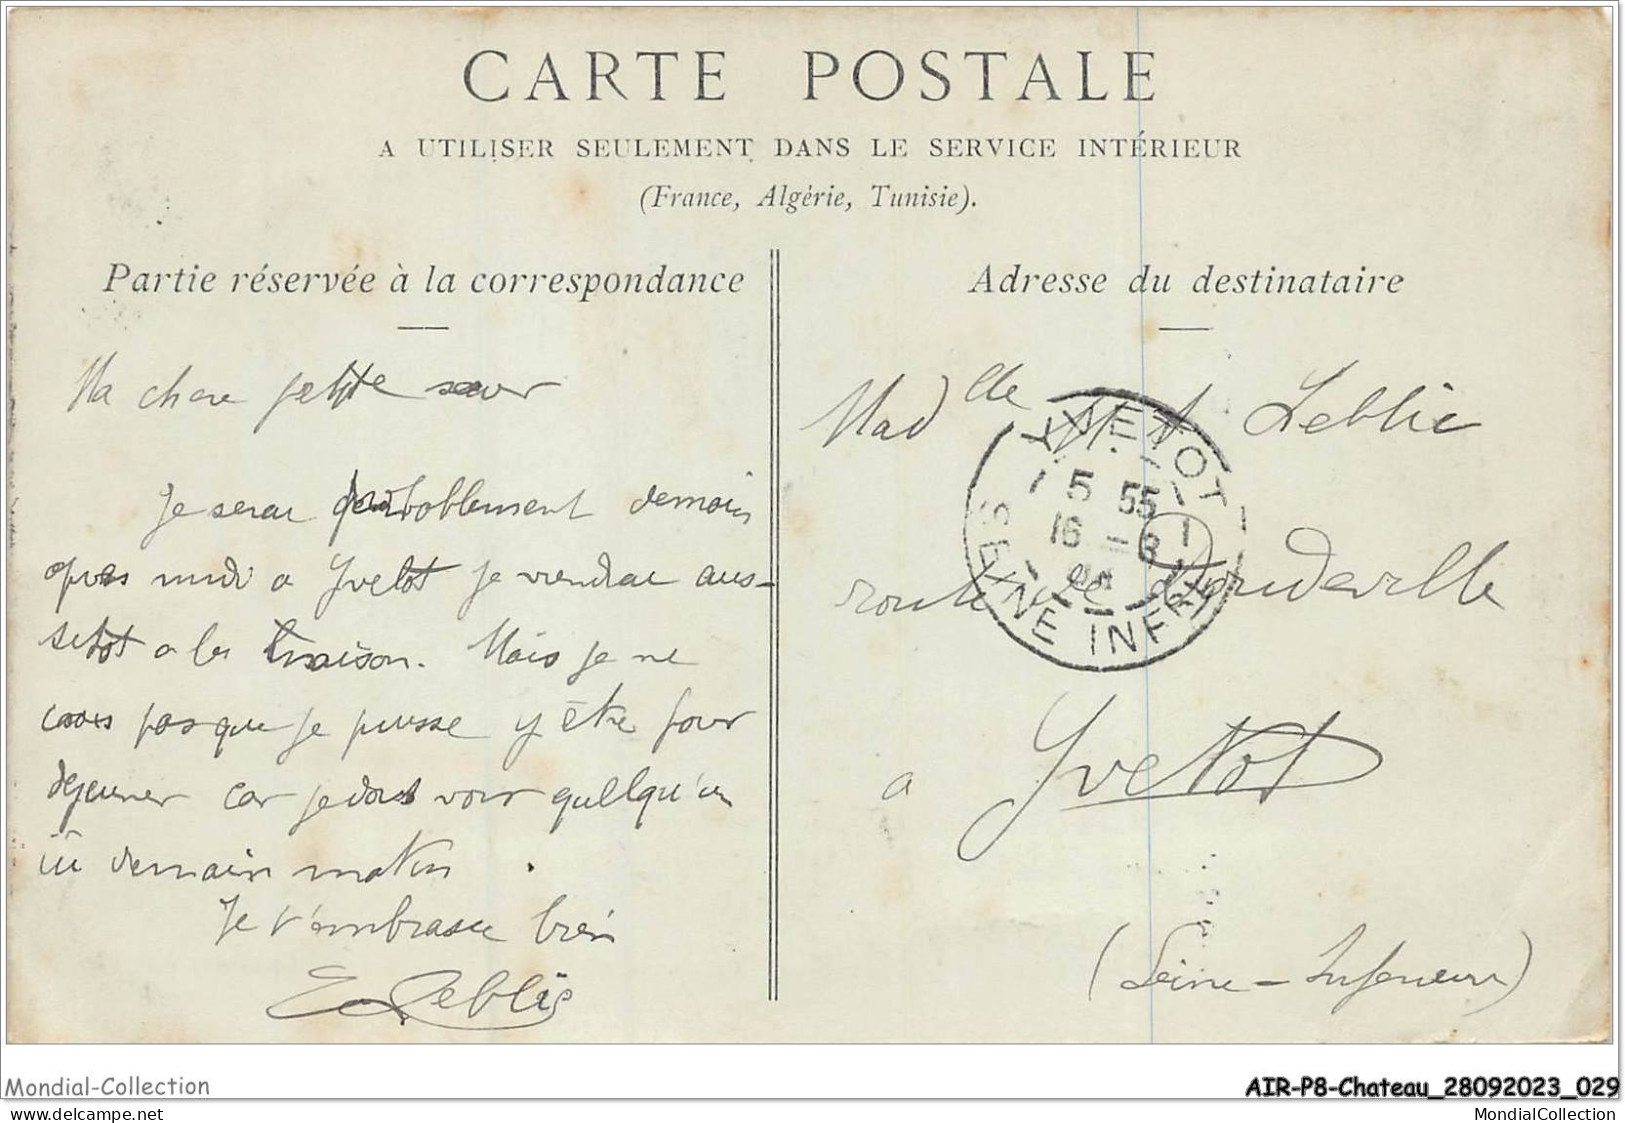 CARTE POSTALE
A UTILISER SEULEMENT DANS LE SERVICE INTÉRIEUR
(France, Algérie, Tunisie).
Partie réservée à la correspondance
Ma chere petite sœur
Je serai probablement demain
apres midi a Yvetot je viendrai aus-
sitot a la maison. Mais je ne
crois pas que je puisse y être pour
dejeuner car je dois voir quelqu'un
ici demain matin.
Je t'embrasse bien
E Leblic
Adresse du destinataire
Madlle M. A Leblic
route de Doudeville
a Yvetot
(Seine-Inferieure)
YVETOT
5 55
16 - 8
SEINE INFRE
Mondial-Collection
AIR-P8-Chateau_28092023_029
www.delcampe.net
MondialCollection